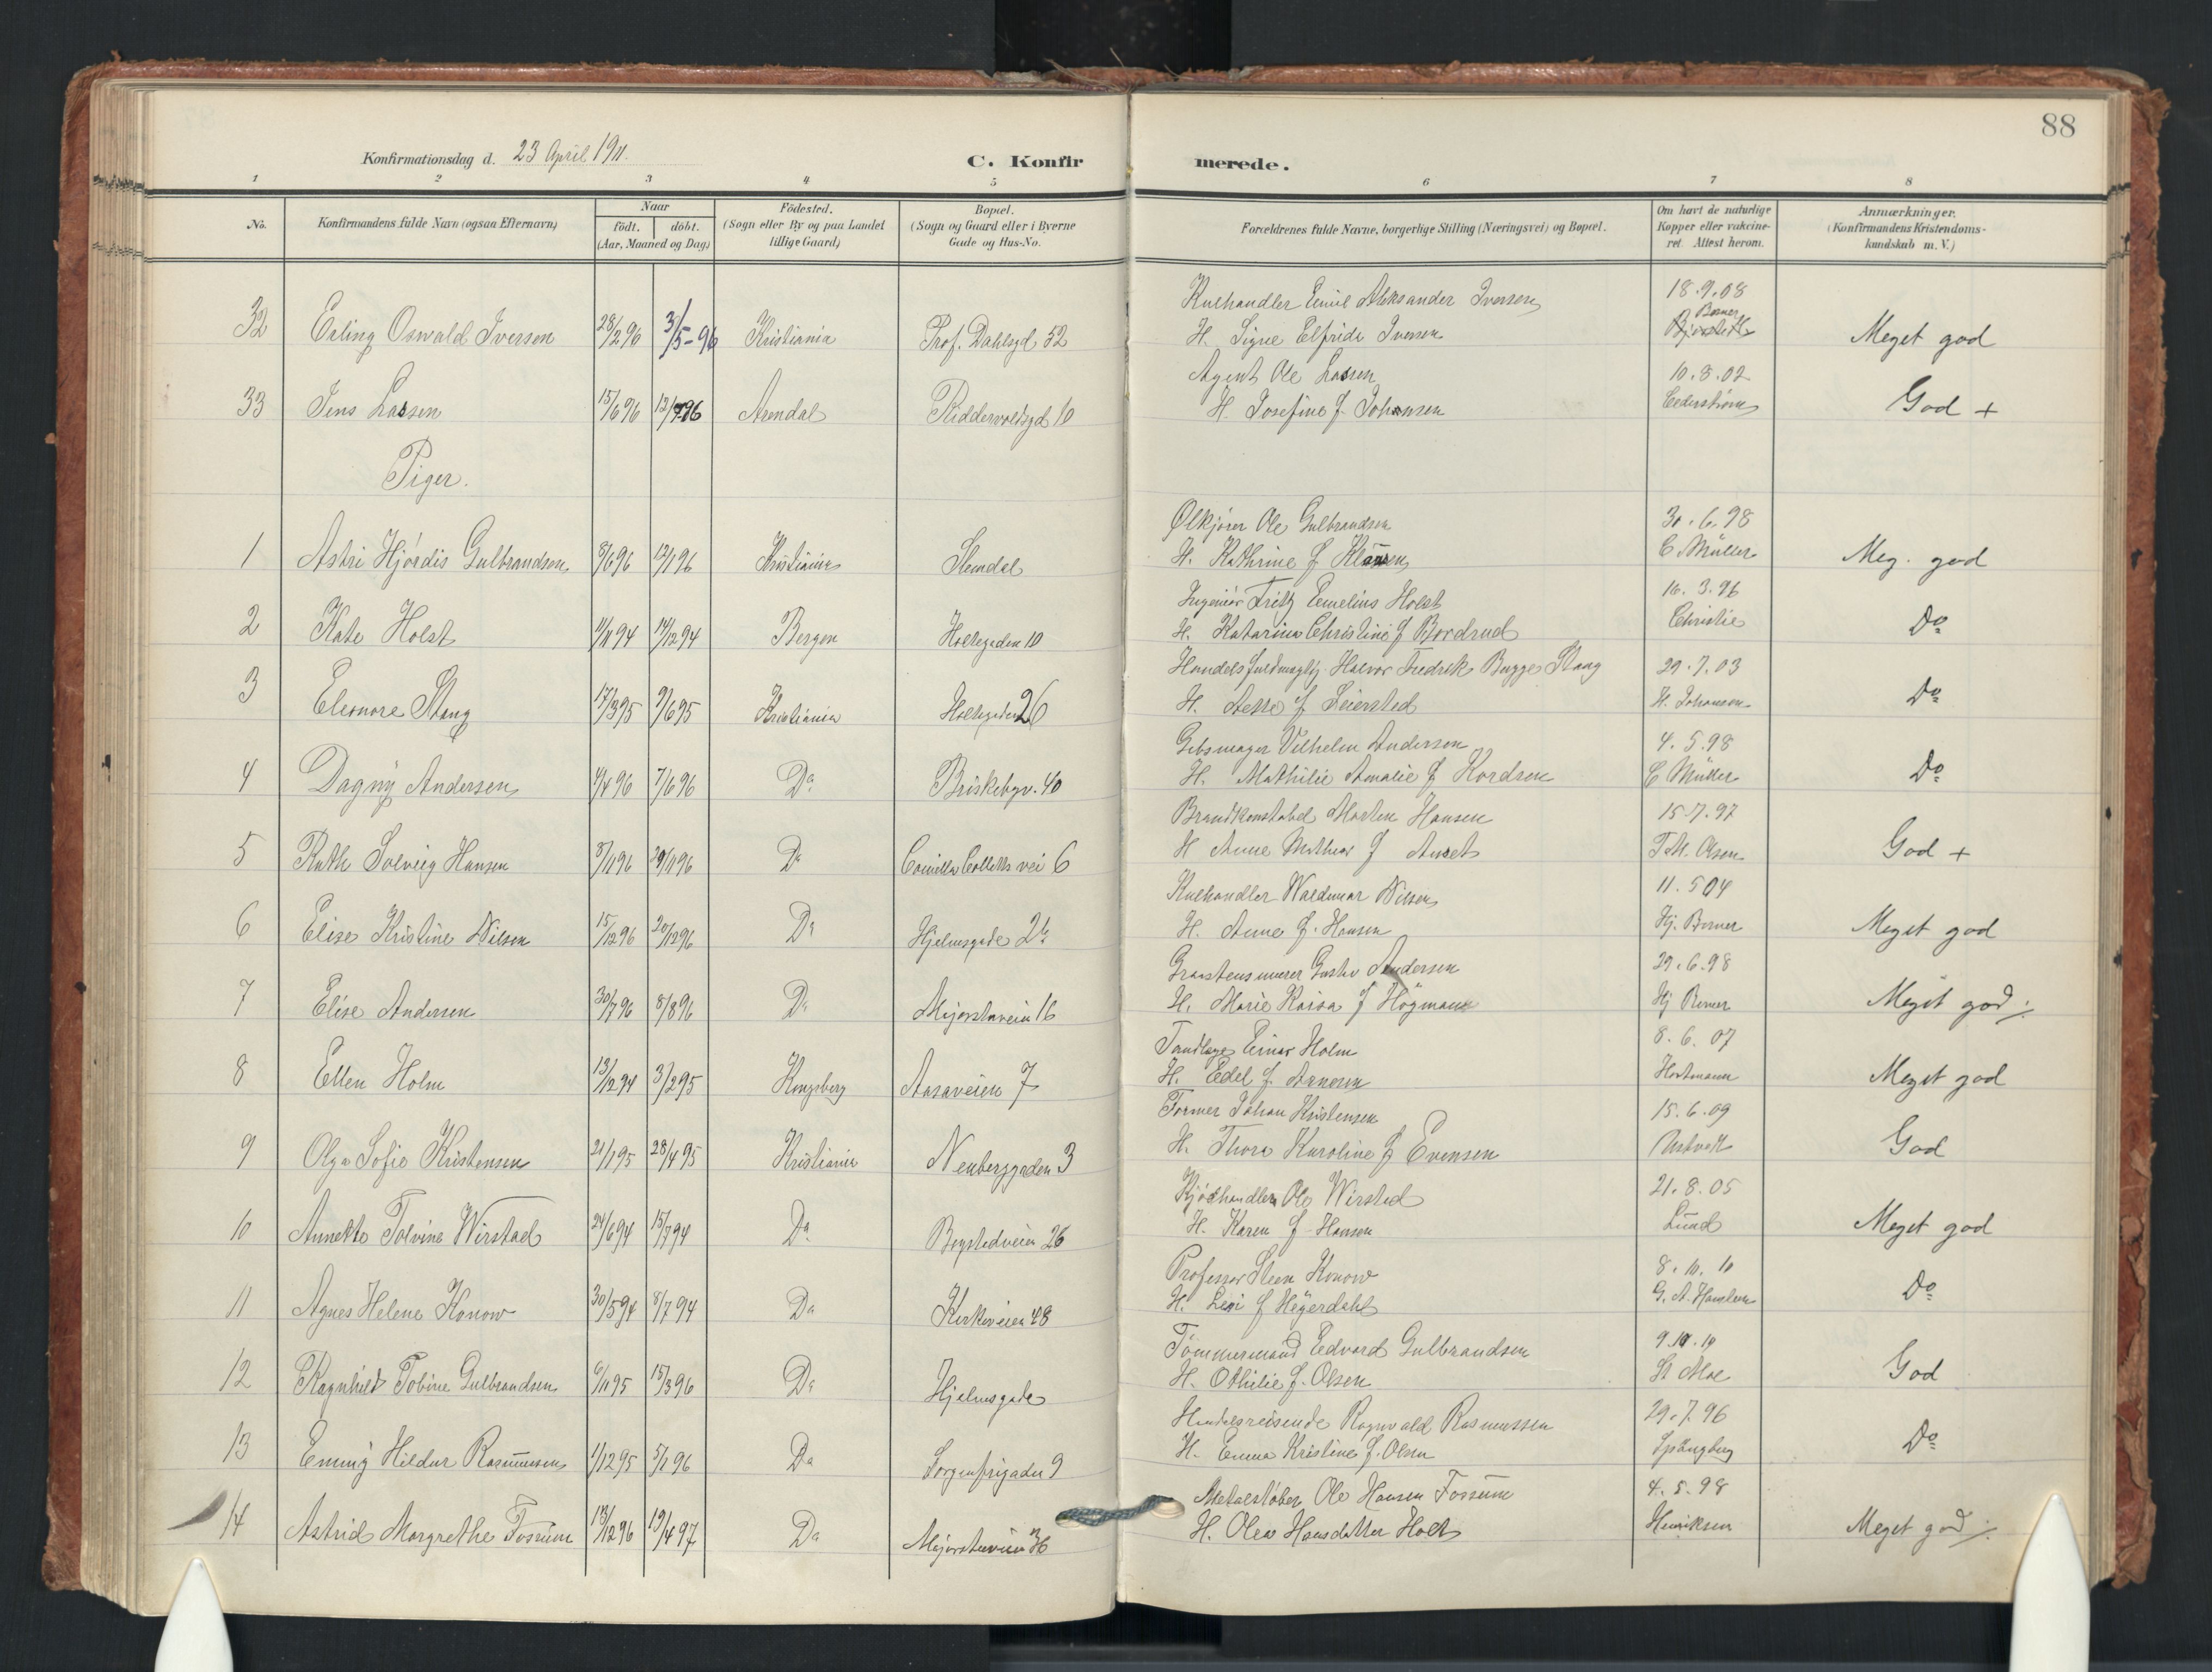 88
Konfirmationsdag d. 23 April 1911.
C. Konfirmerede.
1 2 3 4 5 6 7 8
No.
Konfirmandens fulde Navn (ogsaa Efternavn)
Naar
födt. döbt.
(Aar, Maaned og Dag)
Födested.
(Sogn eller By og paa Landet
tillige Gaard)
Bopæl.
(Sogn og Gaard eller i Byerne
Gade og Hus-No.
Forældrenes fulde Navne, borgerlige Stilling (Næringsvei) og Bopæl.
Om havt de naturlige
Kopper eller vakcine-
ret Attest herom.
Anmærkninger.
(Konfirmandens Kristendoms-
kundskab m. V.)
Kulhandler Emil Aleksander Iversen 18.9.08
32 Erling Oswald Iversen 28/2 96 3/5-96 Kristiania Prof. Dahlsgd 52 H. Signe Elfride Iversen Meget god
Agent Ole Lassen 10.8.02
33 Jens Lassen 15/6 96 12/7 96 Arendal Riddervoldsgd 10 H. Josefine f Johansen Cederstrøm God +
Piger.
Ølkjører Ole Gulbrandsen 30.6.98
1 Astri Hjördis Gulbrandsen 8/6 96 12/1 96 Kristiania Slemdal H. Kathrine f Klausen C. Müller Meg. god
Ingeniør Fritz Cornelius Holst 16.3.96
2 Kate Holst 11/11 94 14/12 94 Bergen Holtegaden 10 H. Katarina Christine f Bordrud Christie Do
Handelsfuldmægtig Halvor Fredrik Bugge Stang 29.7.03
3 Eleonore Stang 17/3 95 9/6 95 Kristiania Holtegaden 26 H. f Leiersted H. Johansen Do
Gibsmager Vilhelm Andersen 4.5.98
4 Dagny Andersen 4/4 96 7/6 96 Do Briskebyv. 40 H. Mathilie Amalie f Kordsen C Müller Do
Brandkonstabel Morten Hansen 15.7.97
5 Ruth Solveig Hansen 8/11 96 29/11 96 Do Camilla Colletts vei 6 H Anne Mathea f T. M. Olsen God +
Kulhandler Waldemar Nilsen 11.5 04
6 Elise Kristine Nilsen 15/12 96 20/12 96 Do Hjelmsgade 2b H. Anne f. Hansen Hj. Berner Meget god
Graastensmurer Gustav Andersen 29.6.98
7 Elise Andersen 30/7 96 8/8 96 Do Majorstuveien 16 H. Marie Kaisa f Högman Hj Berner Meget god ./.
Tandlæge Einar Holm 8.6.07
8 Ellen Holm 13/12 94 3/2 95 Kongsberg Aasaveien 7 H. Edel f. Arnesen Hartmann Meget god
Former Johan Kristensen 15.6.09
9 Olga Sofie Kristensen 21/1 95 28/4 95 Kristiania Neuberggaden 3 H. Thora Karoline f Evensen Ustvedt God
Kjødhandler Ole Wirsted 21.8.05
10 Annette Tolvine Wirstad 24/6 94 15/7 94 Do Bogstadveien 26 H. Karen f. Hansen Lund Meget god
Professor Sten Konow 8.10.10
11 Agnes Helene Konow 30/5 94 8/7 94 Do Kirkeveien 48 H. Lisi f Heyerdahl G. A. Do
Tömmermand Edvard Gulbrandsen
12 Ragnhild Tobine Gulbrandsen 6/11 95 15/3 96 Do Hjelmsgade H. Othilie f. Olsen Moe God
Handelsreisende Ragnvald Rasmussen 29.7.96
13 Emmy Hildur Rasmussen 1/12 95 5/1 96 Do Sorgenfrigaden 9 H. Emma Kristine f. Olsen Spångberg Do
Metalstøber Ole Hansen Fossum 4.5.98
14 Astrid Margrethe Fossum 13/12 96 19/4 97 Do Majorstuveien 36 H. Olea Hansdatter Holt Henriksen Meget god ./.